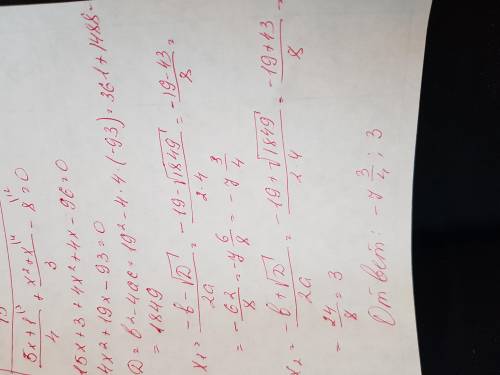 (5x+1)/4 ^(3 + (x²+x)/3 ^(4 - 8 ^(12 = 0
15x+3+4x²+4x-96=0
4x²+19x-93=0
D = b²-4ac = 19²-4·4·(-93) = 361+1488=
= 1849
x₁ = (-b-√D)/2a = (-19-√1849)/(2·4) = (-19-43)/8 =
= -62/8 = -7 6/8 = -7 3/4
x₂ = (-b+√D)/2a = (-19+√1849)/(2·4) = (-19+43)/8 =
= 24/8 = 3
Ответ: -7 3/4; 3